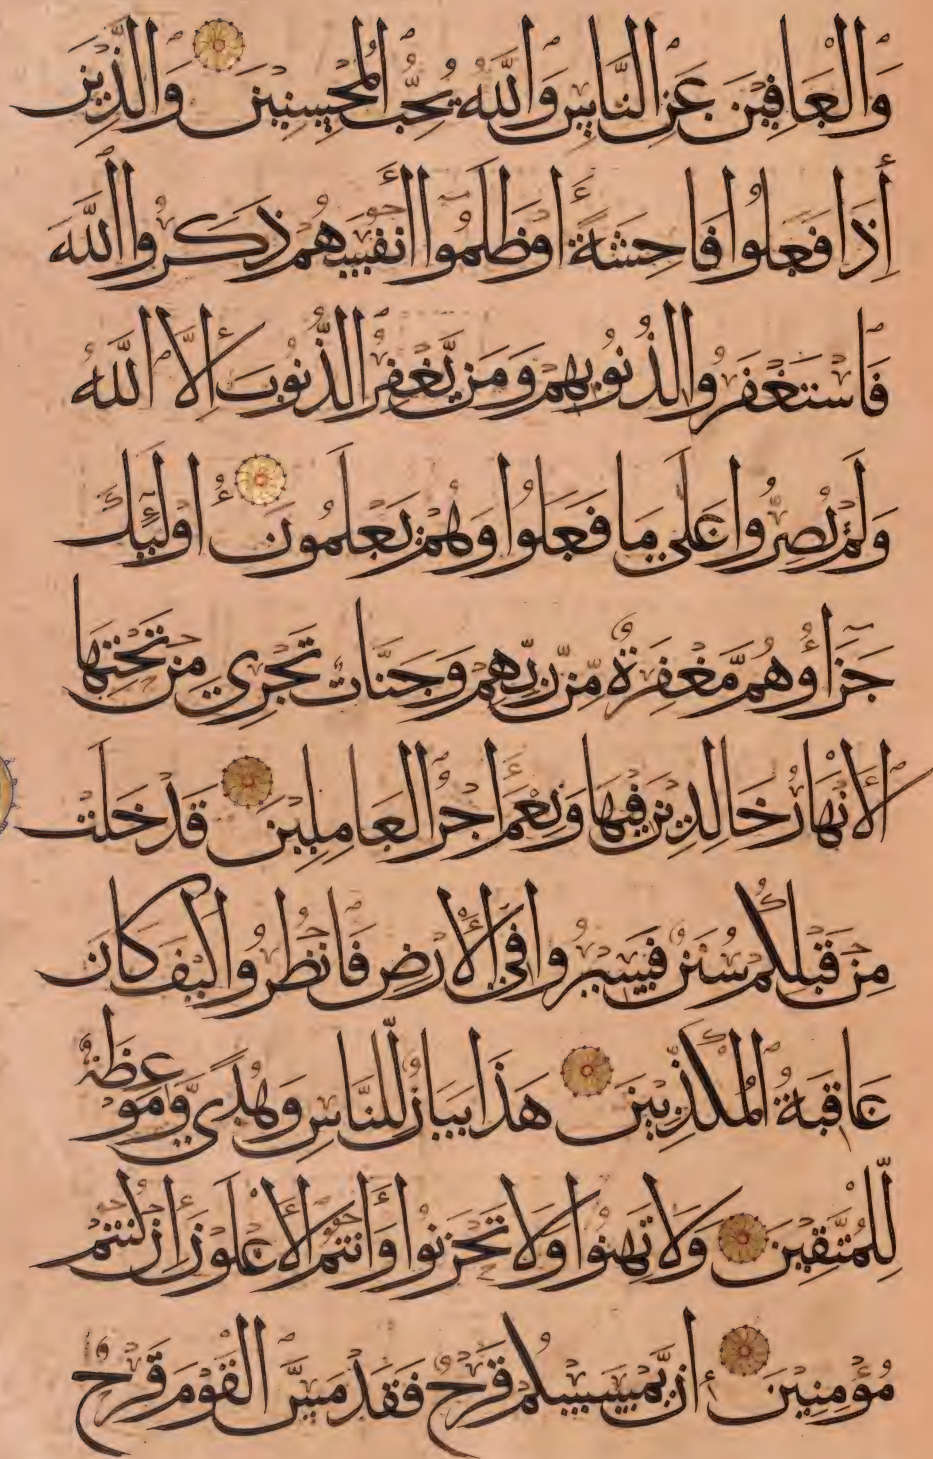 وَالْعَافِينَ عَنِ النَّاسِ وَاللَّهُ يُحِبُّ الْمُحْسِنِينَ وَالَّذِينَ
إِذَا فَعَلُوا فَاحِشَةً أَوْ ظَلَمُوا أَنْفُسَهُمْ ذَكَرُوا اللَّهَ
فَاسْتَغْفَرُوا لِذُنُوبِهِمْ وَمَنْ يَّغْفِرُ الذُّنُوبَ إِلَّا اللَّهُ
وَلَمْ يُصِرُّوا عَلَى مَا فَعَلُوا وَهُمْ يَعْلَمُونَ أُولَٰئِكَ
جَزَاؤُهُمْ مَّغْفِرَةٌ مِّنْ رَّبِّهِمْ وَجَنَّاتٌ تَجْرِي مِنْ تَحْتِهَا
الْأَنْهَارُ خَالِدِينَ فِيهَا وَنِعْمَ أَجْرُ الْعَامِلِينَ قَدْ خَلَتْ
مِنْ قَبْلِكُمْ سُنَنٌ فَسِيرُوا فِي الْأَرْضِ فَانْظُرُوا كَيْفَ كَانَ
عَاقِبَةُ الْمُكَذِّبِينَ هَذَا بَيَانٌ لِّلنَّاسِ وَهُدًى وَّمَوْعِظَةٌ
لِّلْمُتَّقِينَ وَلَا تَهِنُوا وَلَا تَحْزَنُوا وَأَنْتُمُ الْأَعْلَوْنَ إِنْ كُنْتُمْ
مُؤْمِنِينَ إِنْ يَّمْسَسْكُمْ قَرْحٌ فَقَدْ مَسَّ الْقَوْمَ قَرْحٌ